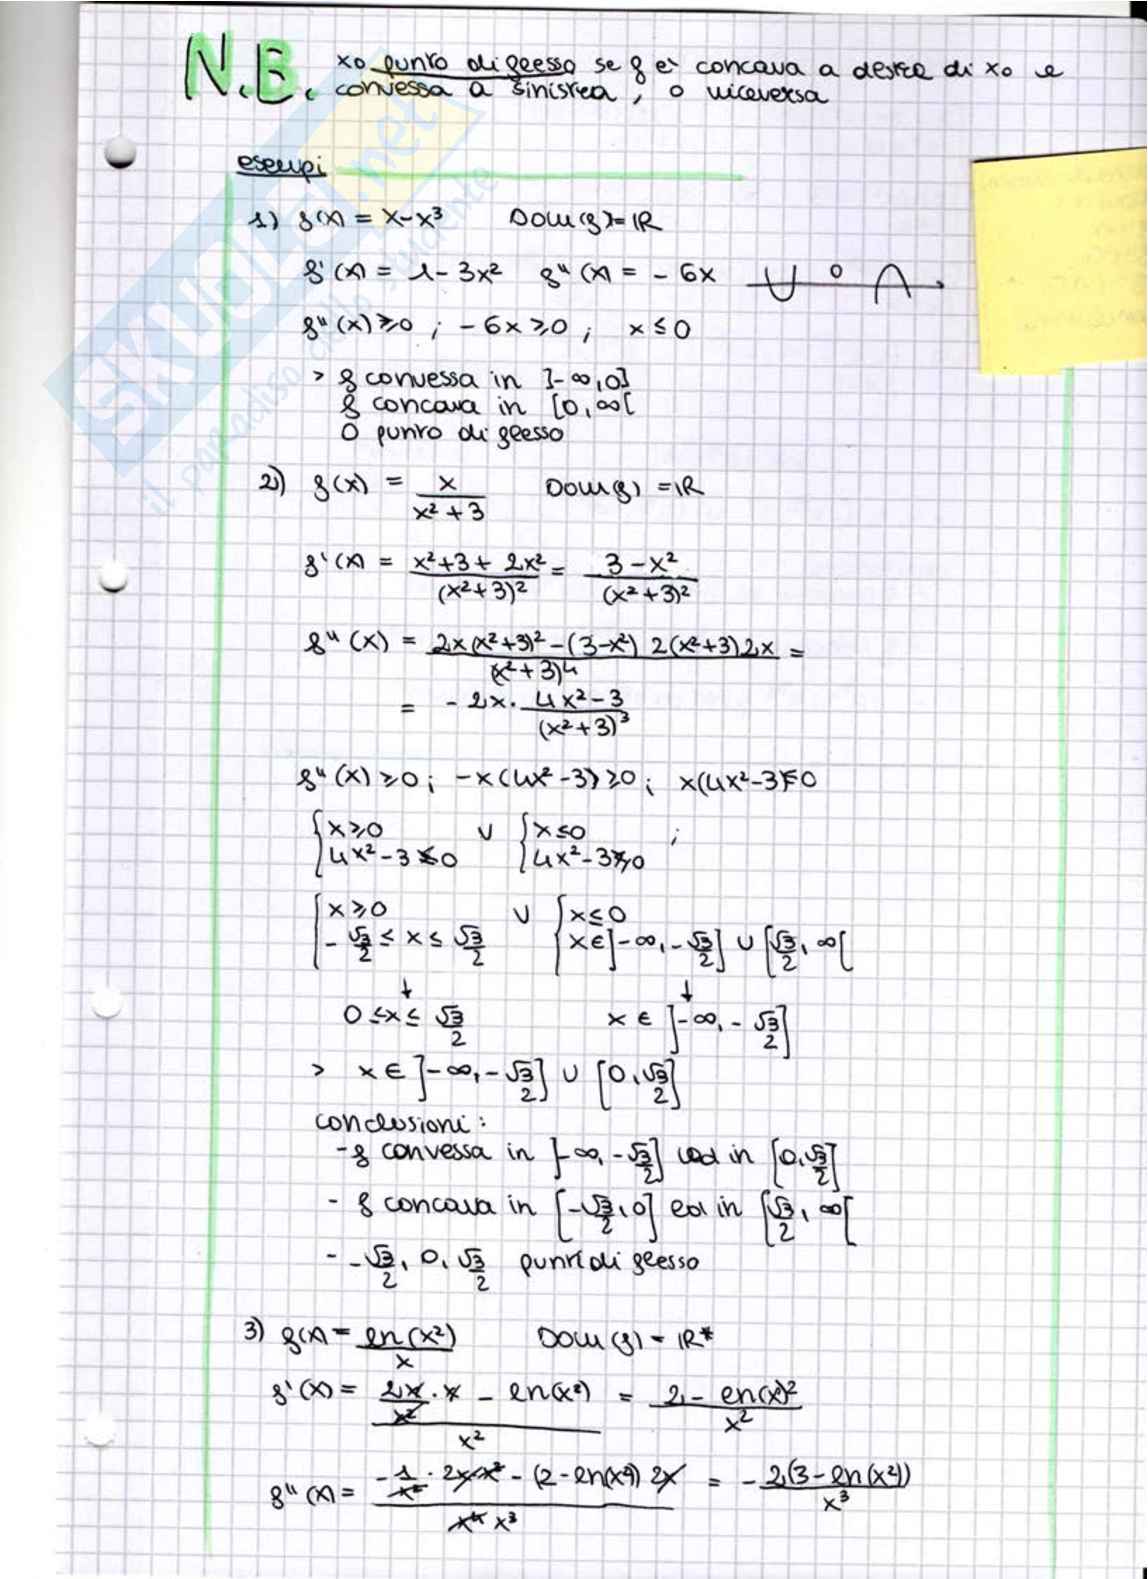 N.B. x0 punto di flesso se f è concava a destra di x0 e
convessa a sinistra, o viceversa
esempi
1) f(x) = x-x³ Dom(f)=ℝ
f'(x) = 1-3x² f''(x) = -6x ∪ 0 ∩
f''(x)≥0 ; -6x≥0 ; x≤0
> f convessa in ]-∞,0]
f concava in [0,∞[
0 punto di flesso
2) f(x) = x/(x²+3) Dom(f) =ℝ
f'(x) = (x²+3+2x²)/(x²+3)² = (3-x²)/(x²+3)²
f''(x) = (2x(x²+3)²-(3-x²) 2(x²+3)2x)/(x²+3)⁴ =
= -2x · (4x²-3)/(x²+3)³
f''(x)≥0 ; -x(4x²-3)≥0 ; x(4x²-3)≤0
{x≥0 ∨ {x≤0 ;
4x²-3≤0 4x²-3≥0
{x≥0 ∨ {x≤0
-√3/2 ≤ x ≤ √3/2 x∈]-∞,-√3/2] ∪ [√3/2, ∞[
↓ ↓
0≤x≤ √3/2 x ∈ ]-∞, -√3/2]
> x∈]-∞,-√3/2] ∪ [0,√3/2]
conclusioni:
-f convessa in ]-∞,-√3/2] ed in [0,√3/2]
- f concava in [-√3/2,0] ed in [√3/2, ∞[
- -√3/2, 0, √3/2 punti di flesso
3) f(x)= ln(x²)/x Dom(f) = ℝ*
f'(x) = (2x/x² · x - ln(x²))/x² = (2 - ln(x)²)/x²
f''(x) = (-1/x² · 2x·x² - (2-ln(x²)) 2x)/(x⁴ x³) = - 2(3-ln(x²))/x³
SKUOLA.net
il paradiso dello studente